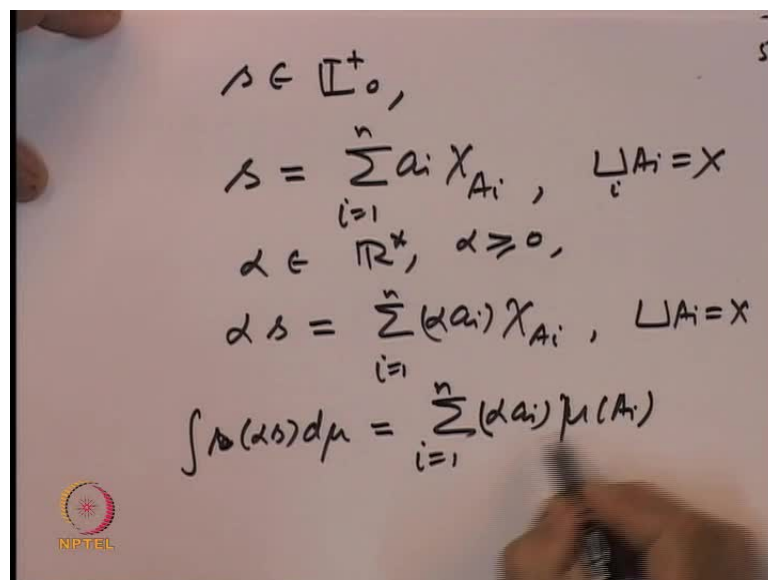 s ∈ 𝕃⁺₀,
s = ∑ᵢ₌₁ⁿ aᵢ χ_{Aᵢ}, ⊔ᵢ Aᵢ = X
α ∈ ℝ*, α ≥ 0,
α s = ∑ᵢ₌₁ⁿ (α aᵢ) χ_{Aᵢ}, ⊔ Aᵢ = X
∫ (α s) dμ = ∑ᵢ₌₁ⁿ (α aᵢ) μ(Aᵢ)
NPTEL